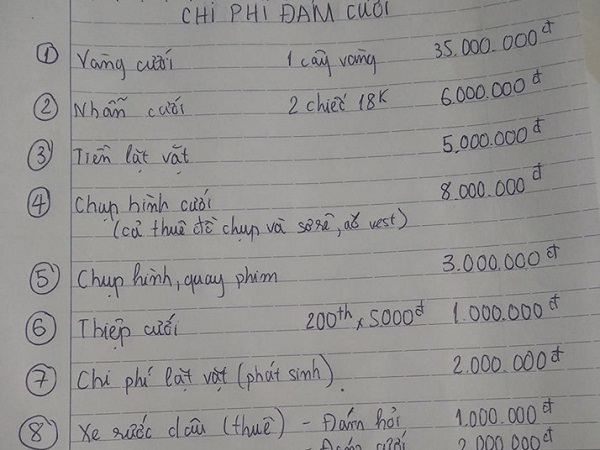 CHI PHÍ ĐÁM CƯỚI
① Vàng cưới 1 cây vàng 35.000.000đ
② Nhẫn cưới 2 chiếc 18K 6.000.000đ
③ Tiền lặt vặt 5.000.000đ
④ Chụp hình cưới 8.000.000đ
(cả thuê đồ chụp và sơrê, áo vest)
⑤ Chụp hình, quay phim 3.000.000đ
⑥ Thiệp cưới 200th x 5000đ 1.000.000đ
⑦ Chi phí lặt vặt (phát sinh) 2.000.000đ
⑧ Xe rước dâu (thuê) - Đám hỏi 1.000.000đ
- Đám cưới 2.000.000đ